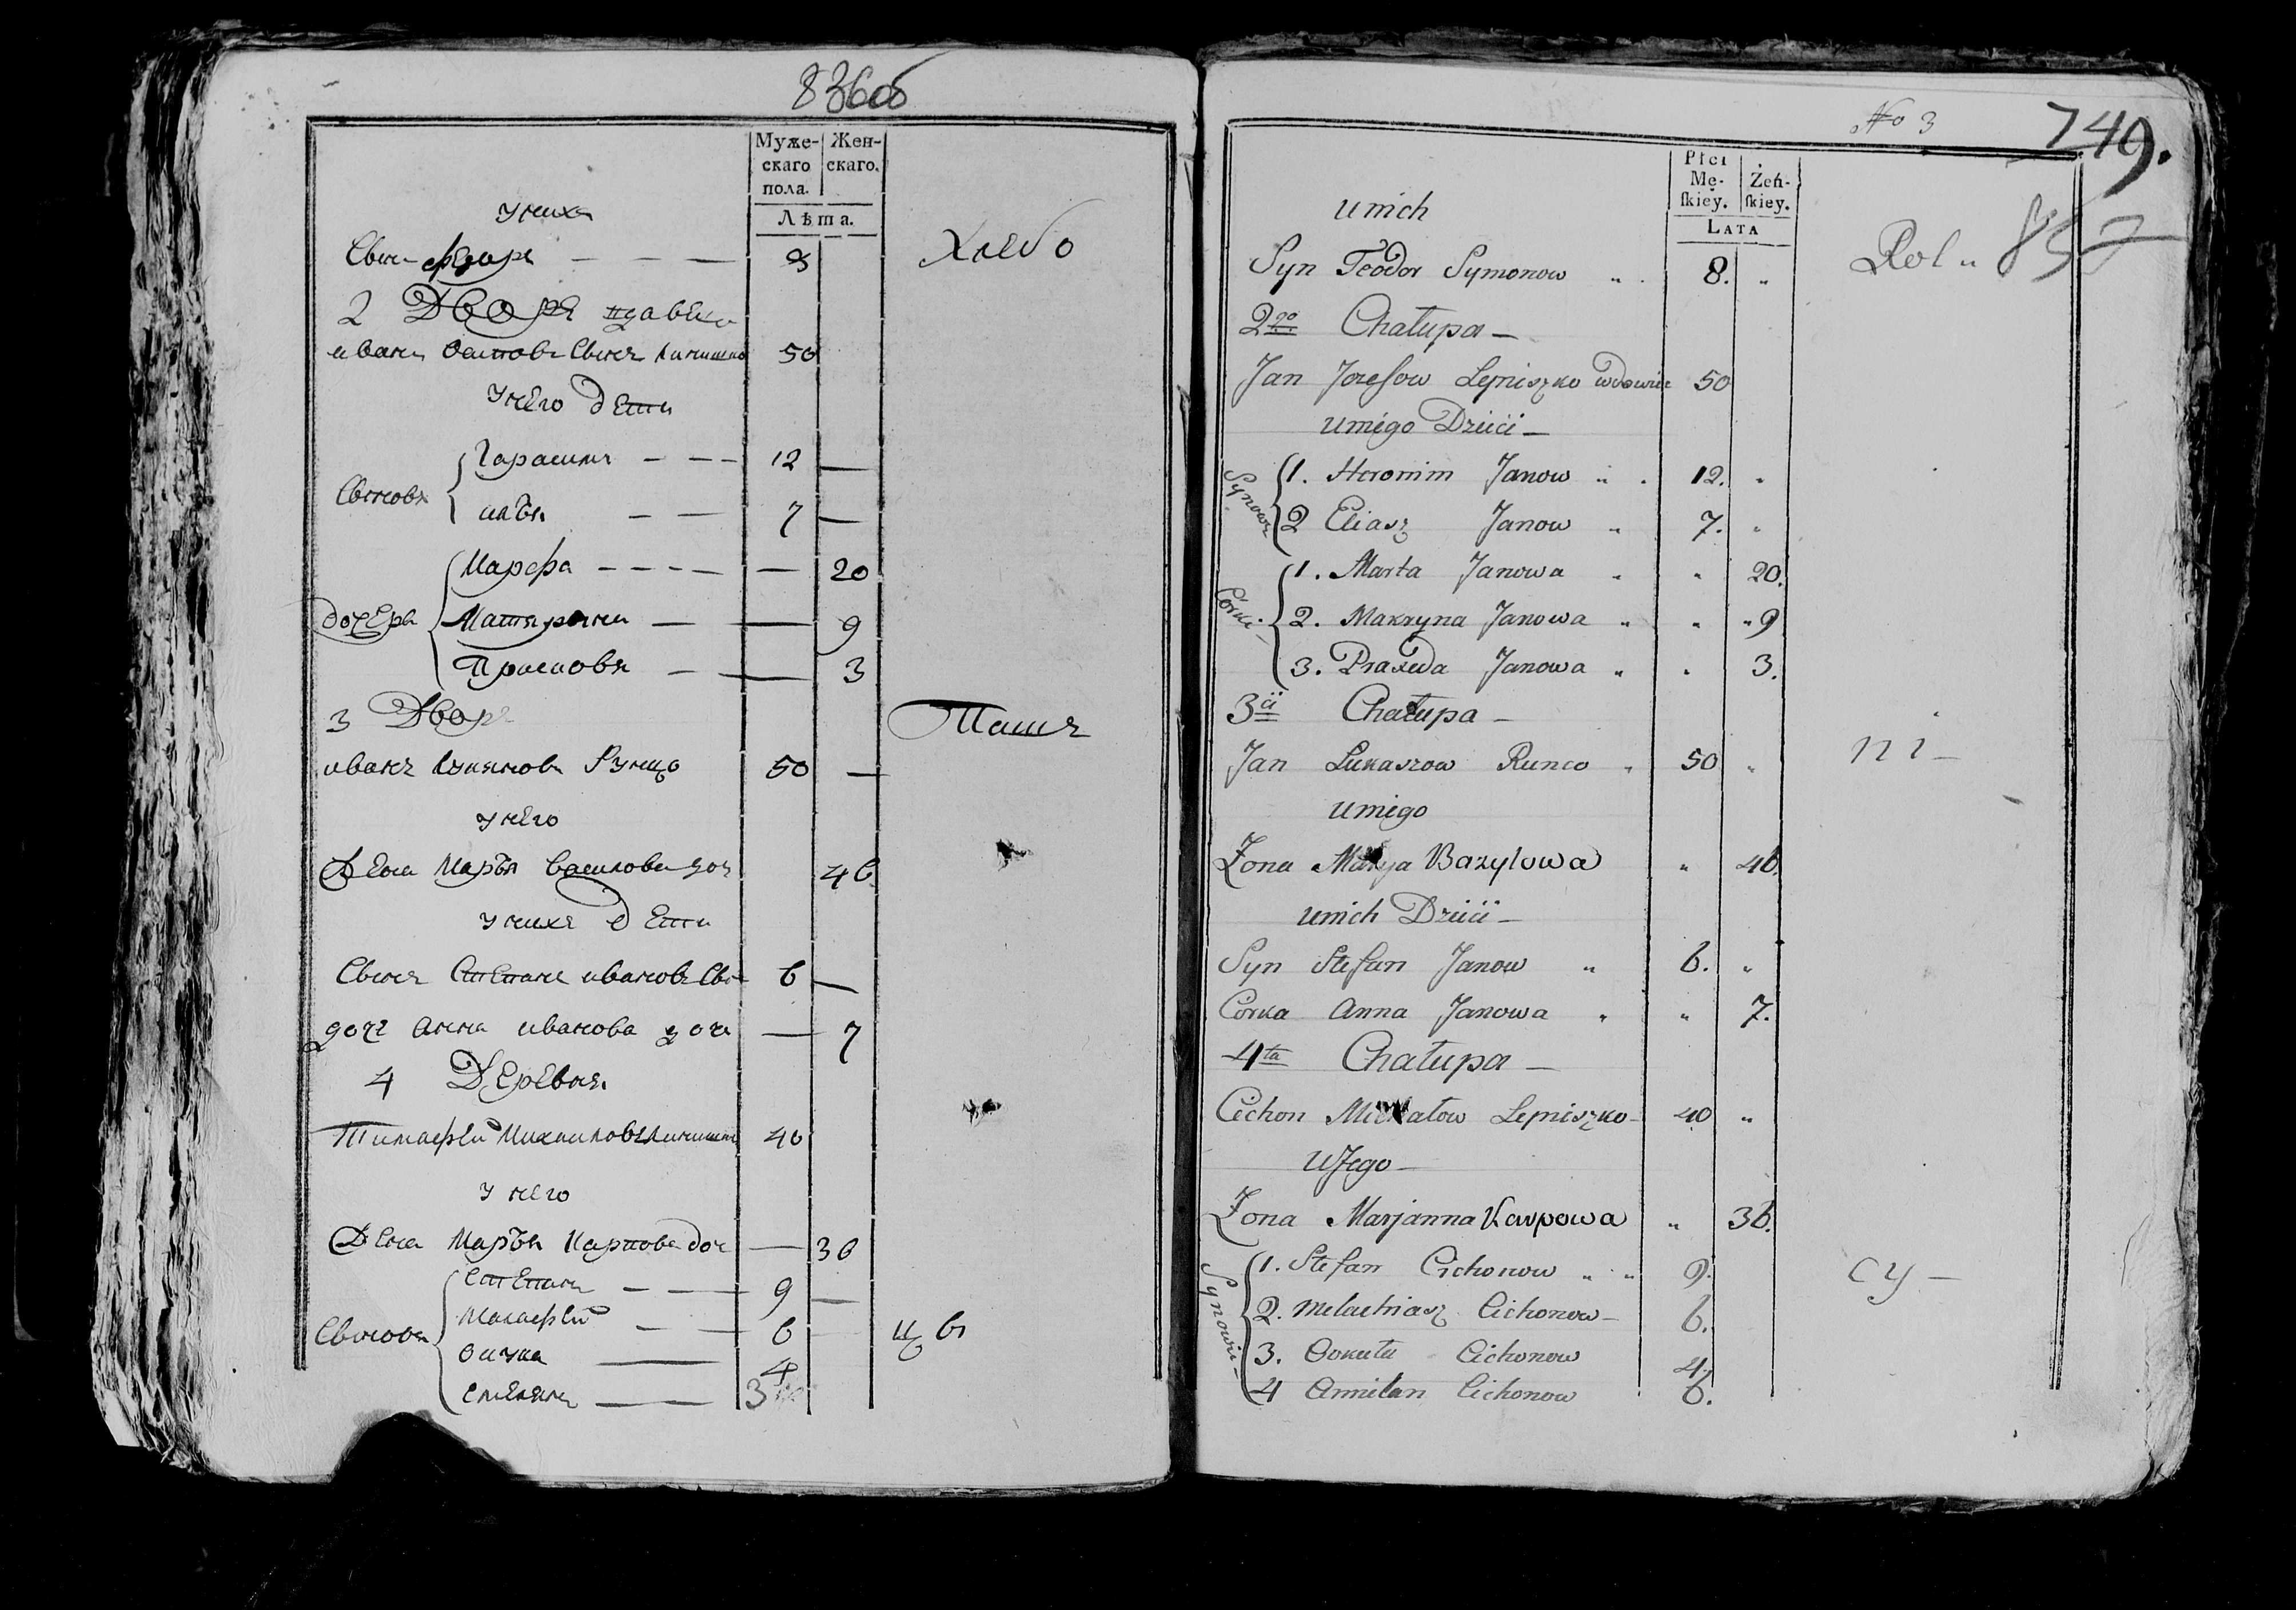 836об
Муже-
скаго
пола.
Жен-
скаго.
Лѣта.
у нихъ
Сынъ Федоръ — — — 8
Хлебо
2 Дворъ
иванъ Осиповъ Сынъ 50
у него дети
Сыновя
Гарасимъ — — — 12 —
илья — — 7 —
дочеря
Марфа — — — — — 20
Матрона — — 9
Просковя — — 3
3 Дворъ
Пашъ
иванъ Лукяновъ Рунцо 50 —
у него
Жена Маря Василова доч 46
у нихъ дети
Сынъ Степанъ ивановъ Сы 6 —
дочь Анна иванова доч — 7
4 Деревня
Тимафей Михаиловъ 40
у него
Жена Маря Карпова доч — 36
Сыновя
Степанъ — — 9 —
Малафей — — 6
Осипа — 4
Емелянъ — 3
цы
№ 3
749.
857
Płci
Mę-
ſkiey.
Żeń-
ſkiey.
LATA
u nich
Syn Teodor Symonow „ . 8. „
Rol „
2go Chałupa —
Jan Jozefow Lepniszko wdowiec 50
u niego Dzieci —
Synowie
1. Heronim Janow „ . 12. „
2 Eliasz Janow „ 7. „
Córki —
1. Marta Janowa „ „ 20.
2. Makryna Janowa „ „ „ 9
3. Praxeda Janowa „ „ 3.
3ci Chałupa —
Jan Łukaszow Runco „ 50 „
ni —
u niego
Żona Marya Bazylowa „ 46.
u nich Dzieci —
Syn Stefan Janow „ 6. „
Córka Anna Janowa „ „ 7.
4ta Chałupa —
Cichon Michałow Lepniszko — 40 „
U Jego —
Żona Marjanna Karpowa „ 36.
Synowie —
1. Stefan Cichonow „ „ 9.
cy —
2. Melachiasz Cichonow — 6.
3. Cichonow 4.
4 Cichonow 6.